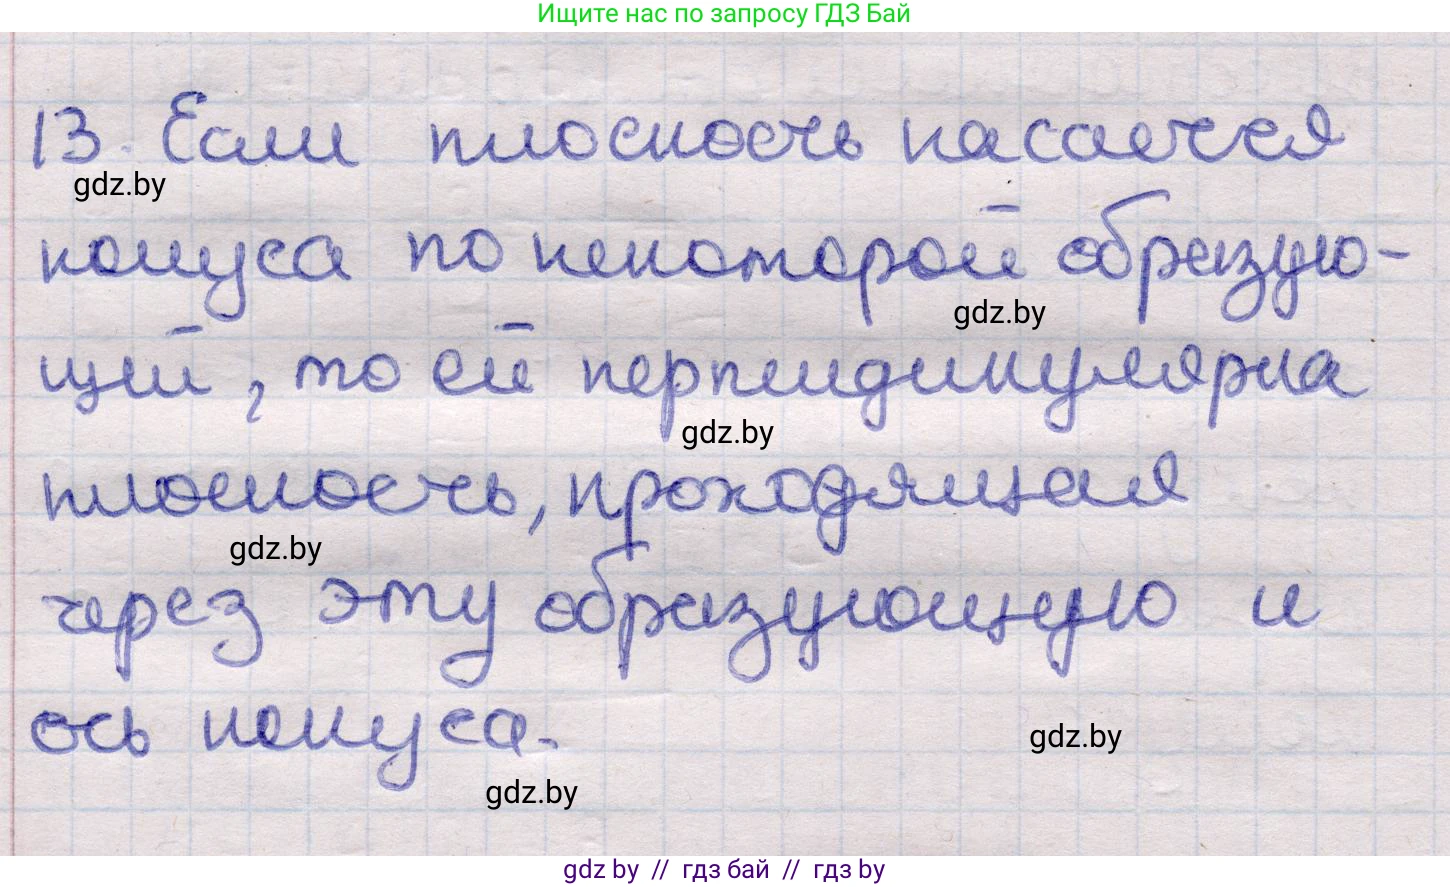 Ищите нас по запросу ГДЗ Бай
13. Если плоскость касается
gdz.by
конуса по некоторой образую-
gdz.by
щий, то ей перпендикулярна
gdz.by
плоскость, проходящая
gdz.by
через эту образующую и
ось конуса.
gdz.by
gdz.by
gdz by // гдз бай // гдз by